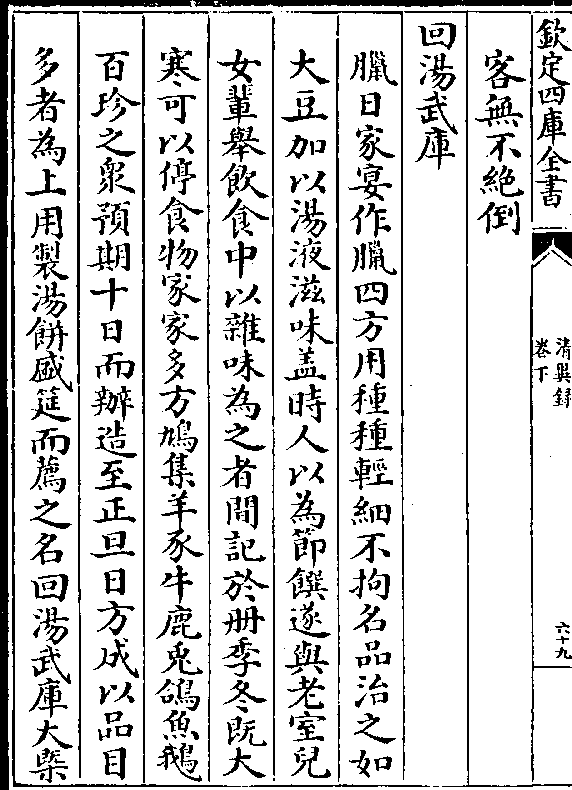 欽定四庫全書
清異録
卷下
六十九
客無不絶倒
回湯武庫
臘日家宴作臘四方用種種輕細不拘名品治之如
大豆加以湯液滋味盖時人以為節饌遂與老室兒
女輩舉飲食中以雜味為之者間記於册季冬既大
寒可以停食物家家多方鳩集羊豕牛鹿兎鴿魚鵝
百珍之衆預期十日而辦造至正旦日方成以品目
多者為上用製湯餅盛筵而薦之名回湯武庫大槩